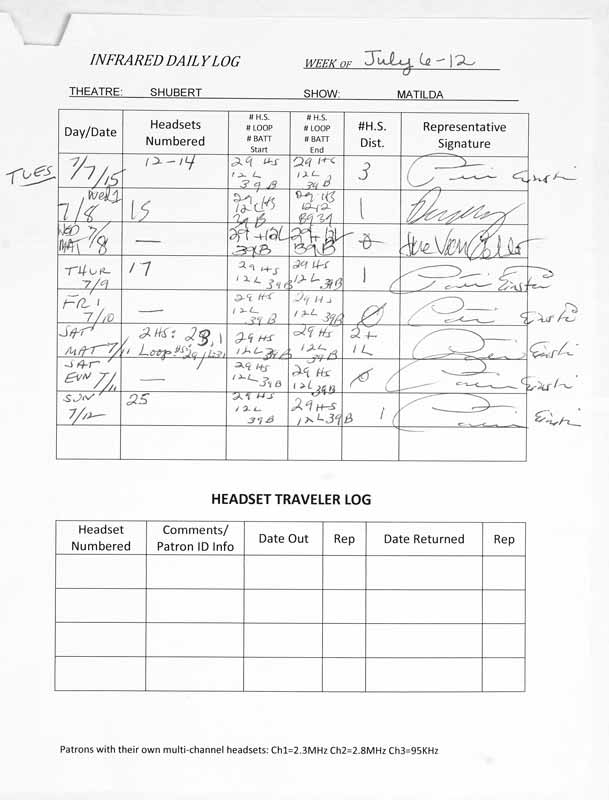 INFRARED DAILY LOG WEEK OF July 6-12
THEATRE: SHUBERT SHOW: MATILDA
Day/Date Headsets Numbered # H.S. # LOOP # BATT Start # H.S. # LOOP # BATT End #H.S. Dist. Representative Signature
TUES 7/7/15 12-14 29 HS 12 L 39 B 29 HS 12 L 39 B 3
7/8 15 29 HS 39 B 29 HS 1
WED 7/8 MAT — 29 + 12L 39B 29 + 12L 39B 0
THUR 7/9 17 29 HS 12L 39B 29 HS 12L 39B 1
FRI 7/10 — 29 HS 12L 39B 29 HS 12L 39B 0
SAT MAT 7/11 2 HS: Loop 29 HS 12L 39B 29 HS 12L 39B 2+ 1L
SAT EVN 7/11 — 29 HS 12L 39B 29 HS 12L 39B 0
SUN 7/12 25 29 HS 12L 39B 29 HS 12L 39B 1
HEADSET TRAVELER LOG
Headset Numbered Comments/ Patron ID Info Date Out Rep Date Returned Rep
Patrons with their own multi-channel headsets: Ch1=2.3MHz Ch2=2.8MHz Ch3=95KHz